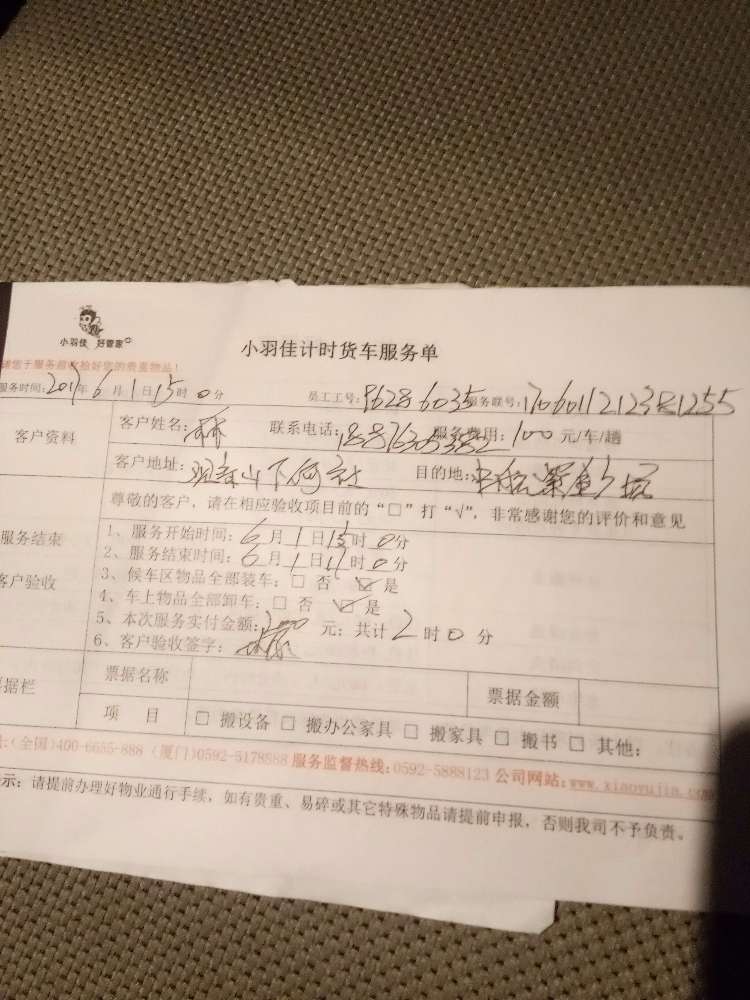 小羽佳 好管家
小羽佳计时货车服务单
您于服务前收拾好您的贵重物品!
服务时间:2017年6月1日15时0分 员工工号: 服务联号:
客户资料 客户姓名:林 联系电话: 服务费用:100元/车/趟
客户地址: 目的地:
尊敬的客户,请在相应验收项目前的“□”打“√”,非常感谢您的评价和意见
服务结束
客户验收
1、服务开始时间:6月1日15时0分
2、服务结束时间:6月1日17时0分
3、候车区物品全部装车:□ 否 ☑ 是
4、车上物品全部卸车:□ 否 ☑ 是
5、本次服务实付金额:200元;共计2时0分
6、客户验收签字:
据栏 票据名称 票据金额
项 目 □ 搬设备 □ 搬办公家具 □ 搬家具 □ 搬书 □ 其他:
:(全国)400-6655-888 (厦门)0592-5178888 服务监督热线:0592-5888123 公司网站:www.xiaoyujia.com
示:请提前办理好物业通行手续,如有贵重、易碎或其它特殊物品请提前申报,否则我司不予负责。